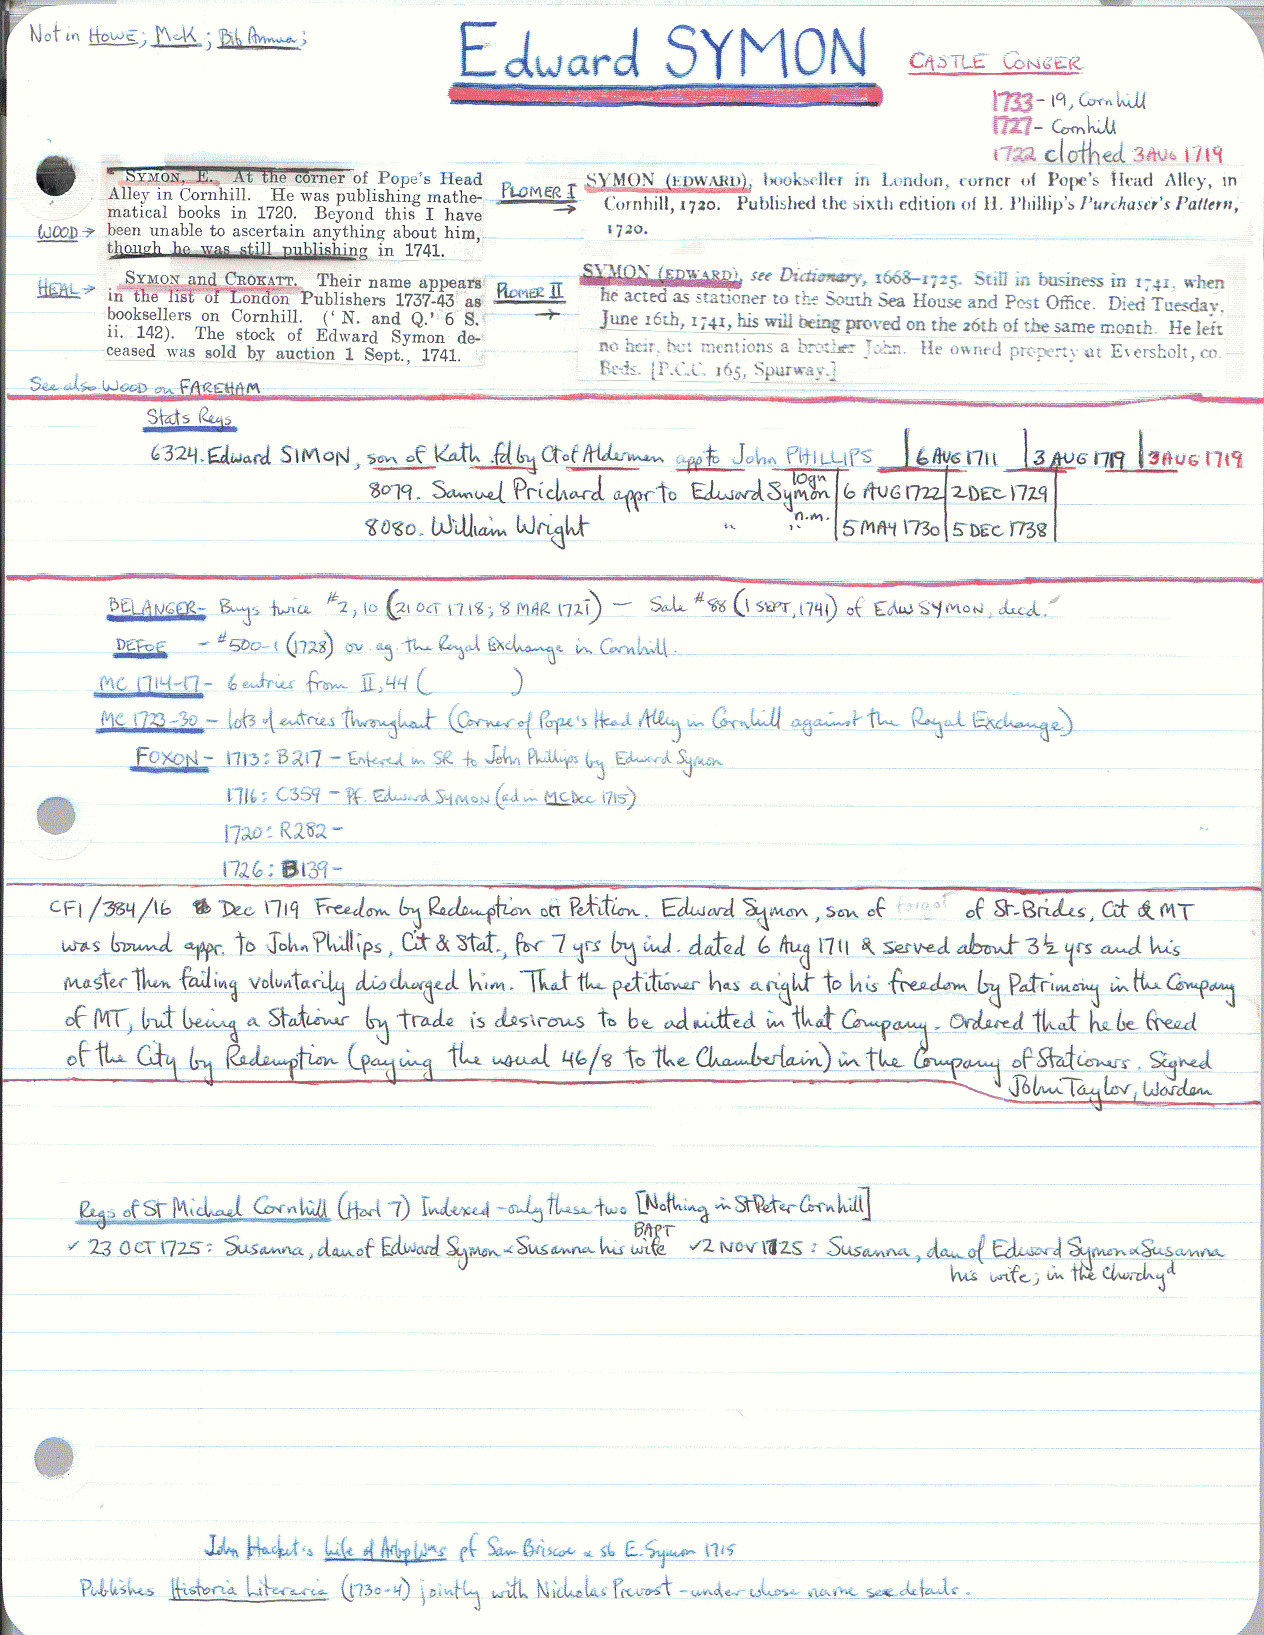 Not in HOWE; McK; Bib Annua;
Edward SYMON
CASTLE CONGER
1733 - 19, Cornhill
1727 - Cornhill
1722 clothed 3 AUG 1719
WOOD →
SYMON, E. At the corner of Pope's Head
Alley in Cornhill. He was publishing mathe-
matical books in 1720. Beyond this I have
been unable to ascertain anything about him,
though he was still publishing in 1741.
PLOMER I →
SYMON (EDWARD), bookseller in London, corner of Pope's Head Alley, in
Cornhill, 1720. Published the sixth edition of H. Phillip's Purchaser's Pattern,
1720.
HEAL →
SYMON and CROKATT. Their name appears
in the list of London Publishers 1737-43 as
booksellers on Cornhill. (' N. and Q.' 6 S.
ii. 142). The stock of Edward Symon de-
ceased was sold by auction 1 Sept., 1741.
PLOMER II →
SYMON (EDWARD), see Dictionary, 1668–1725. Still in business in 1741, when
he acted as stationer to the South Sea House and Post Office. Died Tuesday,
June 16th, 1741, his will being proved on the 26th of the same month. He left
no heir, but mentions a brother John. He owned property at Eversholt, co.
Beds. [P.C.C. 165, Spurway.]
See also WOOD on FAREHAM
Stats Regs
6324. Edward SIMON, son of Kath. fd by Ct of Aldermen app to John PHILLIPS 6 AUG 1711 3 AUG 1719 3 AUG 1719
8079. Samuel Prichard appr to Edward Symon 6 AUG 1722 2 DEC 1729
8080. William Wright " " n.m. 5 MAY 1730 5 DEC 1738
BELANGER - Buys twice #2, 10 (21 OCT 1718; 8 MAR 1721) - Sale #88 (1 SEPT, 1741) of Edw SYMON, decd.
DEFOE - #500-1 (1728) ov. ag. the Royal Exchange in Cornhill.
MC 1714-17 - 6 entries from II, 44 ( )
MC 1723-30 - lots of entries throughout (Corner of Pope's Head Alley in Cornhill against the Royal Exchange)
FOXON - 1713: B217 - Entered in SR to John Phillips by Edward Symon
1716: C359 - Pf. Edward Symon (ad in MC Dec 1715)
1720: R282 -
1726: B139 -
CF1/384/16 Dec 1719 Freedom by Redemption on Petition. Edward Symon, son of forgot of St-Brides, Cit & MT
was bound appr. to John Phillips, Cit & Stat., for 7 yrs by ind. dated 6 Aug 1711 & served about 3½ yrs and his
master then failing voluntarily discharged him. That the petitioner has a right to his freedom by Patrimony in the Company
of MT, but being a Stationer by trade is desirous to be admitted in that Company. Ordered that he be freed
of the City by Redemption (paying the usual 46/8 to the Chamberlain) in the Company of Stationers. Signed
John Taylor, Warden
Regs of St Michael Cornhill (Harl 7) Indexed - only these two [Nothing in St Peter Cornhill]
BAPT
✓ 23 OCT 1725: Susanna, dau of Edward Symon & Susanna his wife ✓ 2 NOV 1725: Susanna, dau of Edward Symon & Susanna
his wife; in the Churchyd
John Hacket's Life of Arbp Wms pf Sam Briscoe & sb E. Symon 1715
Publishes Historia Literaria (1730-4) jointly with Nicholas Prevost - under whose name see details.